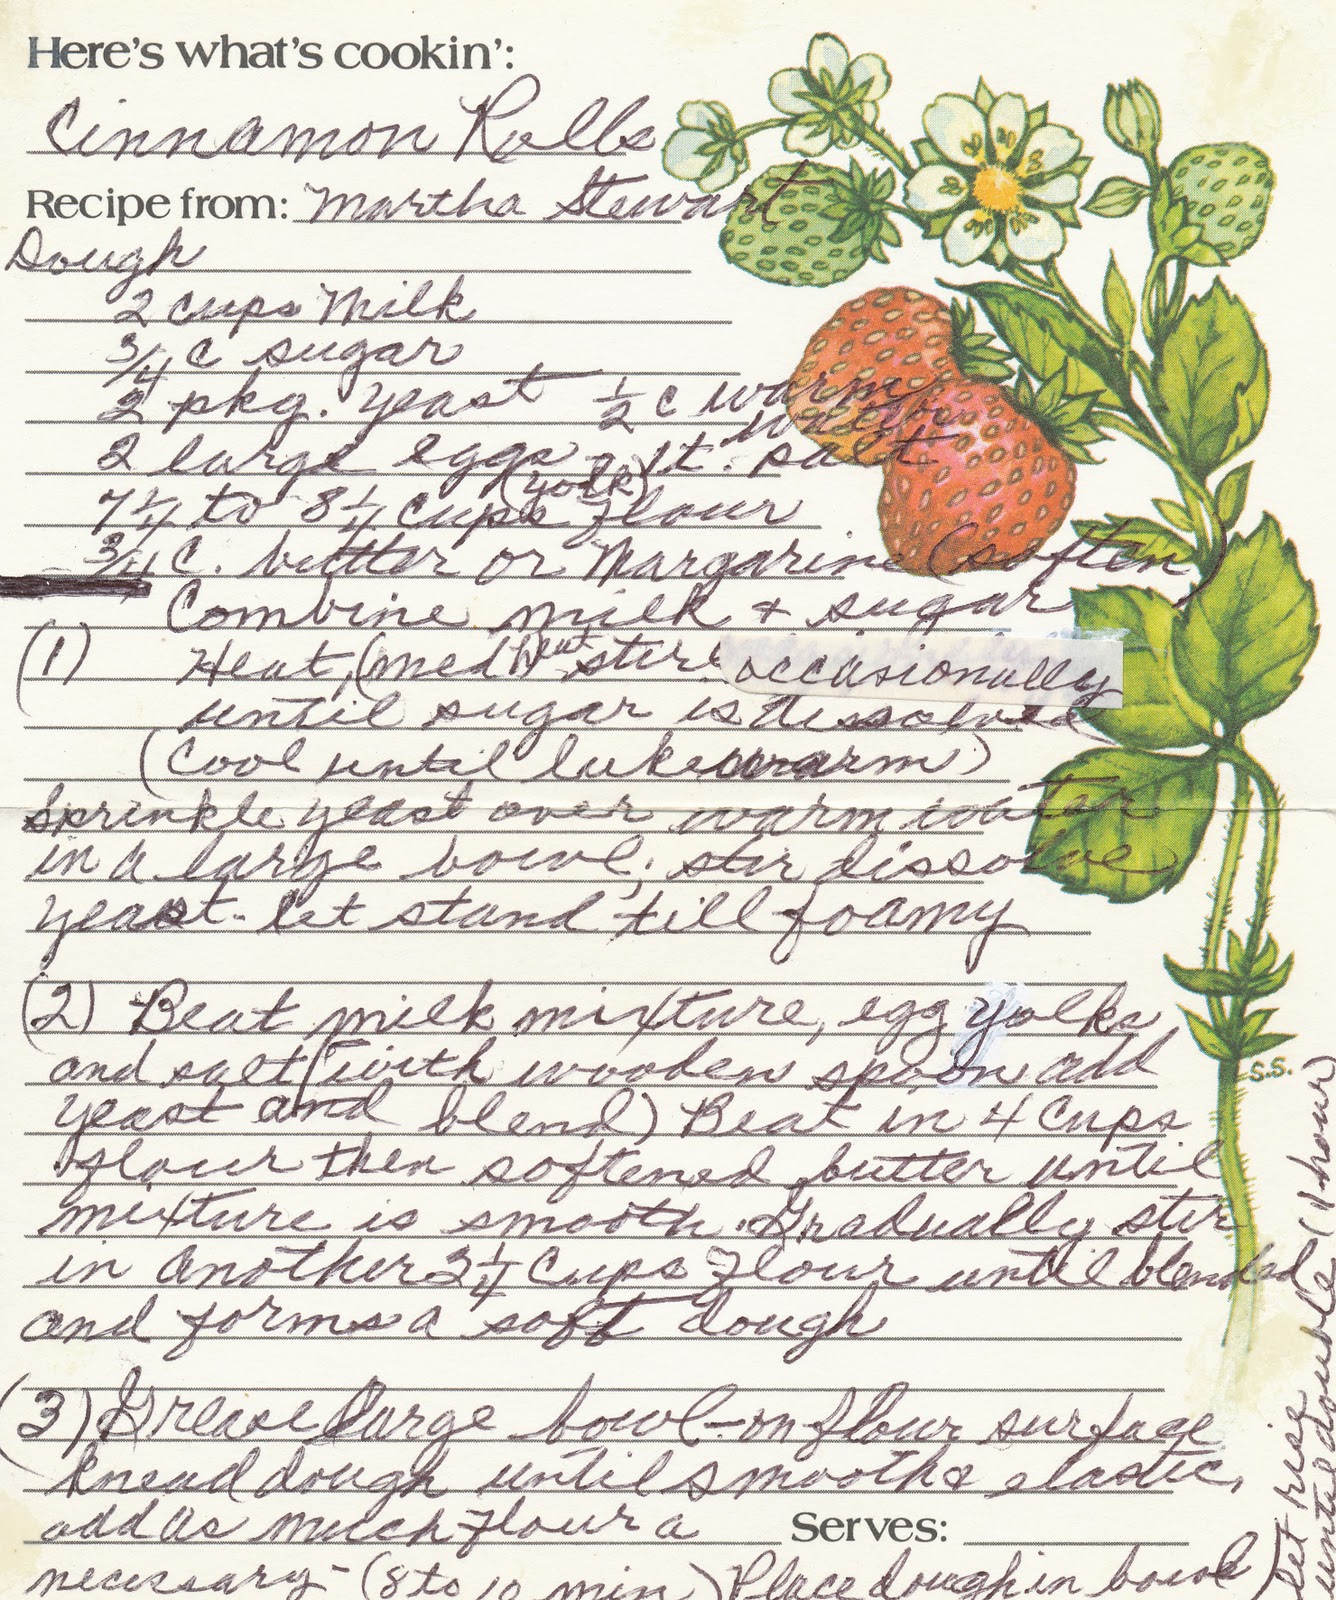 Here's what's cookin':
Cinnamon Rolls
Recipe from: Martha Stewart
Dough
2 cups Milk
3/4 c sugar
2 pkg. yeast 1/2 c warm water
2 large eggs - 1 t. salt
(yolk)
7 1/4 to 8 1/4 cups flour
3/4 c. butter or Margarine (soften)
Combine milk + sugar
(1) Heat, (med heat stir occasionally
until sugar is dissolved
(Cool until lukewarm)
Sprinkle yeast over warm water
in a large bowl; stir dissolve
yeast - let stand till foamy
(2) Beat milk mixture, egg yolks
and salt (with wooden spoon add
yeast and blend) Beat in 4 cups
flour then softened butter until
mixture is smooth. Gradually stir
in another 3 1/4 cups flour until blended
and forms a soft dough
(3) Grease large bowl - on flour surface
knead dough until smooth & elastic,
add as much flour a
Serves:
necessary - (8 to 10 min) Place dough in bowl)
let rise
until double (1 hour)
S.S.